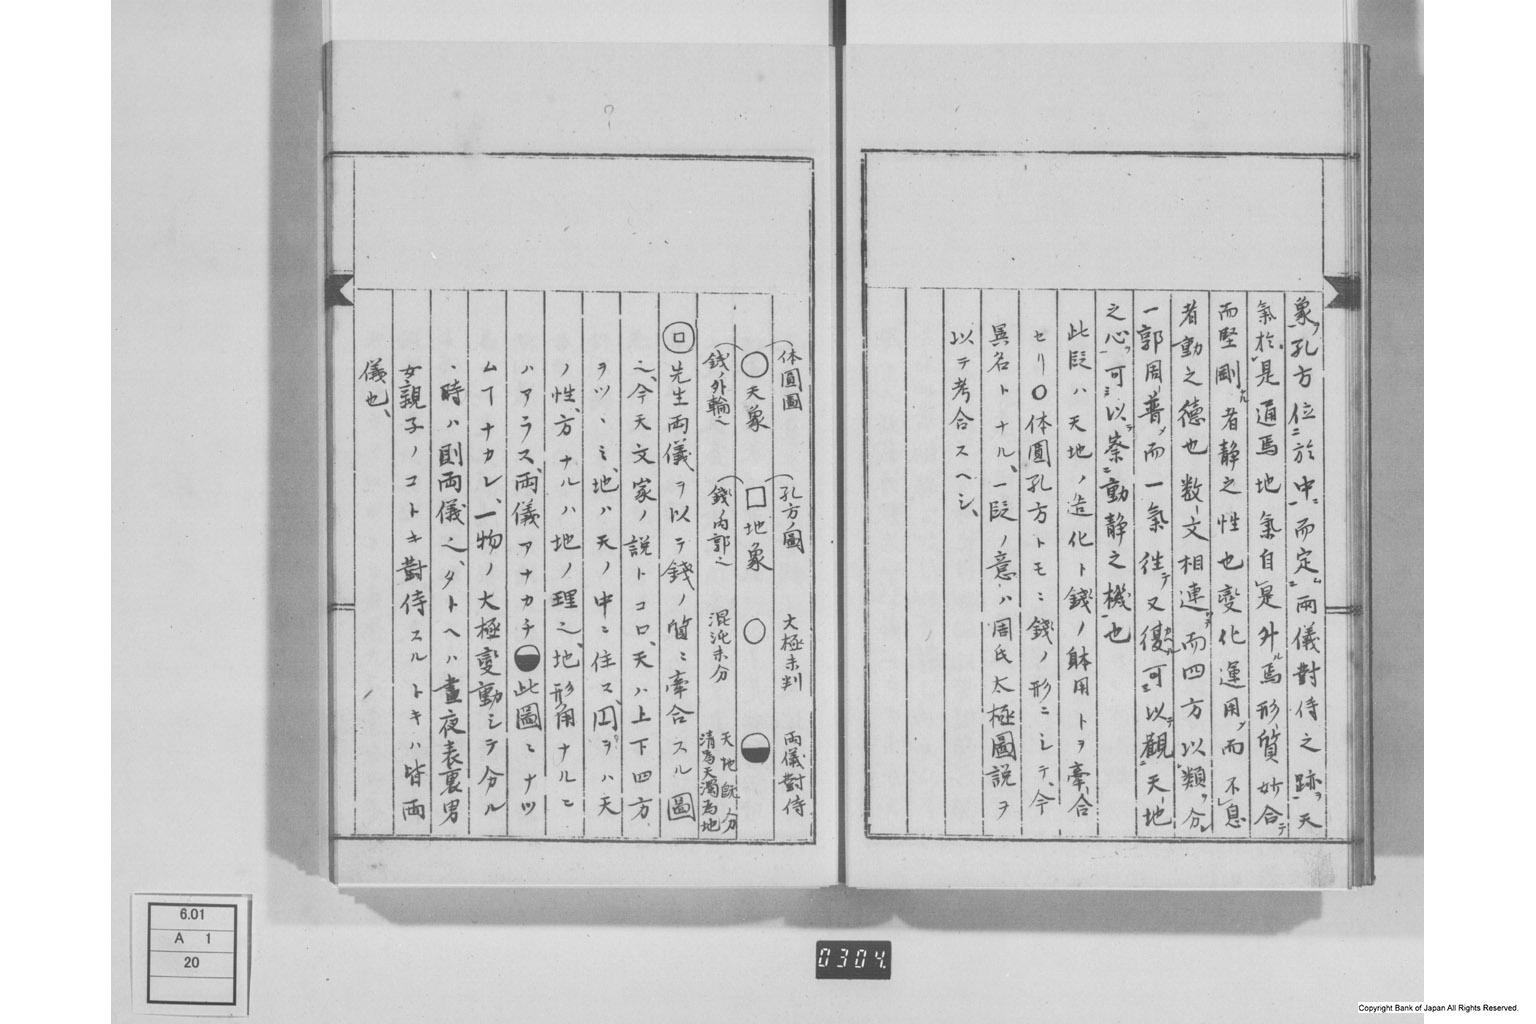 象ヲ孔方位ニ於中ニ而定ム兩儀對待之跡ヲ天
氣於是通焉地氣自是外焉形質妙合テ
而堅剛ナル者静之性也變化運用メ而不息
者動之徳也数文相連而四方以類ヲ分レ
一郭周普メ而一氣往テ又復ル可以テ觀天地
之心ヲ可シ以テ察ニ動静之機也
此段ハ天地ノ造化ト錢ノ躰用トヲ牽合
セリ〇体圓孔方トモニ錢ノ形ニシテ、今
異名トナル、一段ノ意ハ周氏太極圖説ヲ
以テ考合スヘシ、
体圓圖 孔方ノ圖 大極未判 両儀對待
〇天象 □地象 〇
錢ノ外輪也 錢ノ内郭也 混沌未分 天地既分清為天濁為地
先生両儀ヲ以テ錢ノ質ニ牽合スル圖
也、今天文家ノ説トコロ、天ハ上下四方
ヲツヽミ、地ハ天ノ中ニ住ス、囚ヲハ天
ノ性、方ナルハ地ノ理也、地、形角ナルニ
ハアラス、両儀アナカチ此圖ニナツ
ムヿナカレ、一物ノ大極變動シテ分ル
ヽ時ハ則両儀也、タトヘハ晝夜表裏男
女親子ノコトキ對侍スルトキハ皆両
儀也、
6.01
A 1
20
0304
Copyright Bank of Japan All Rights Reserved.